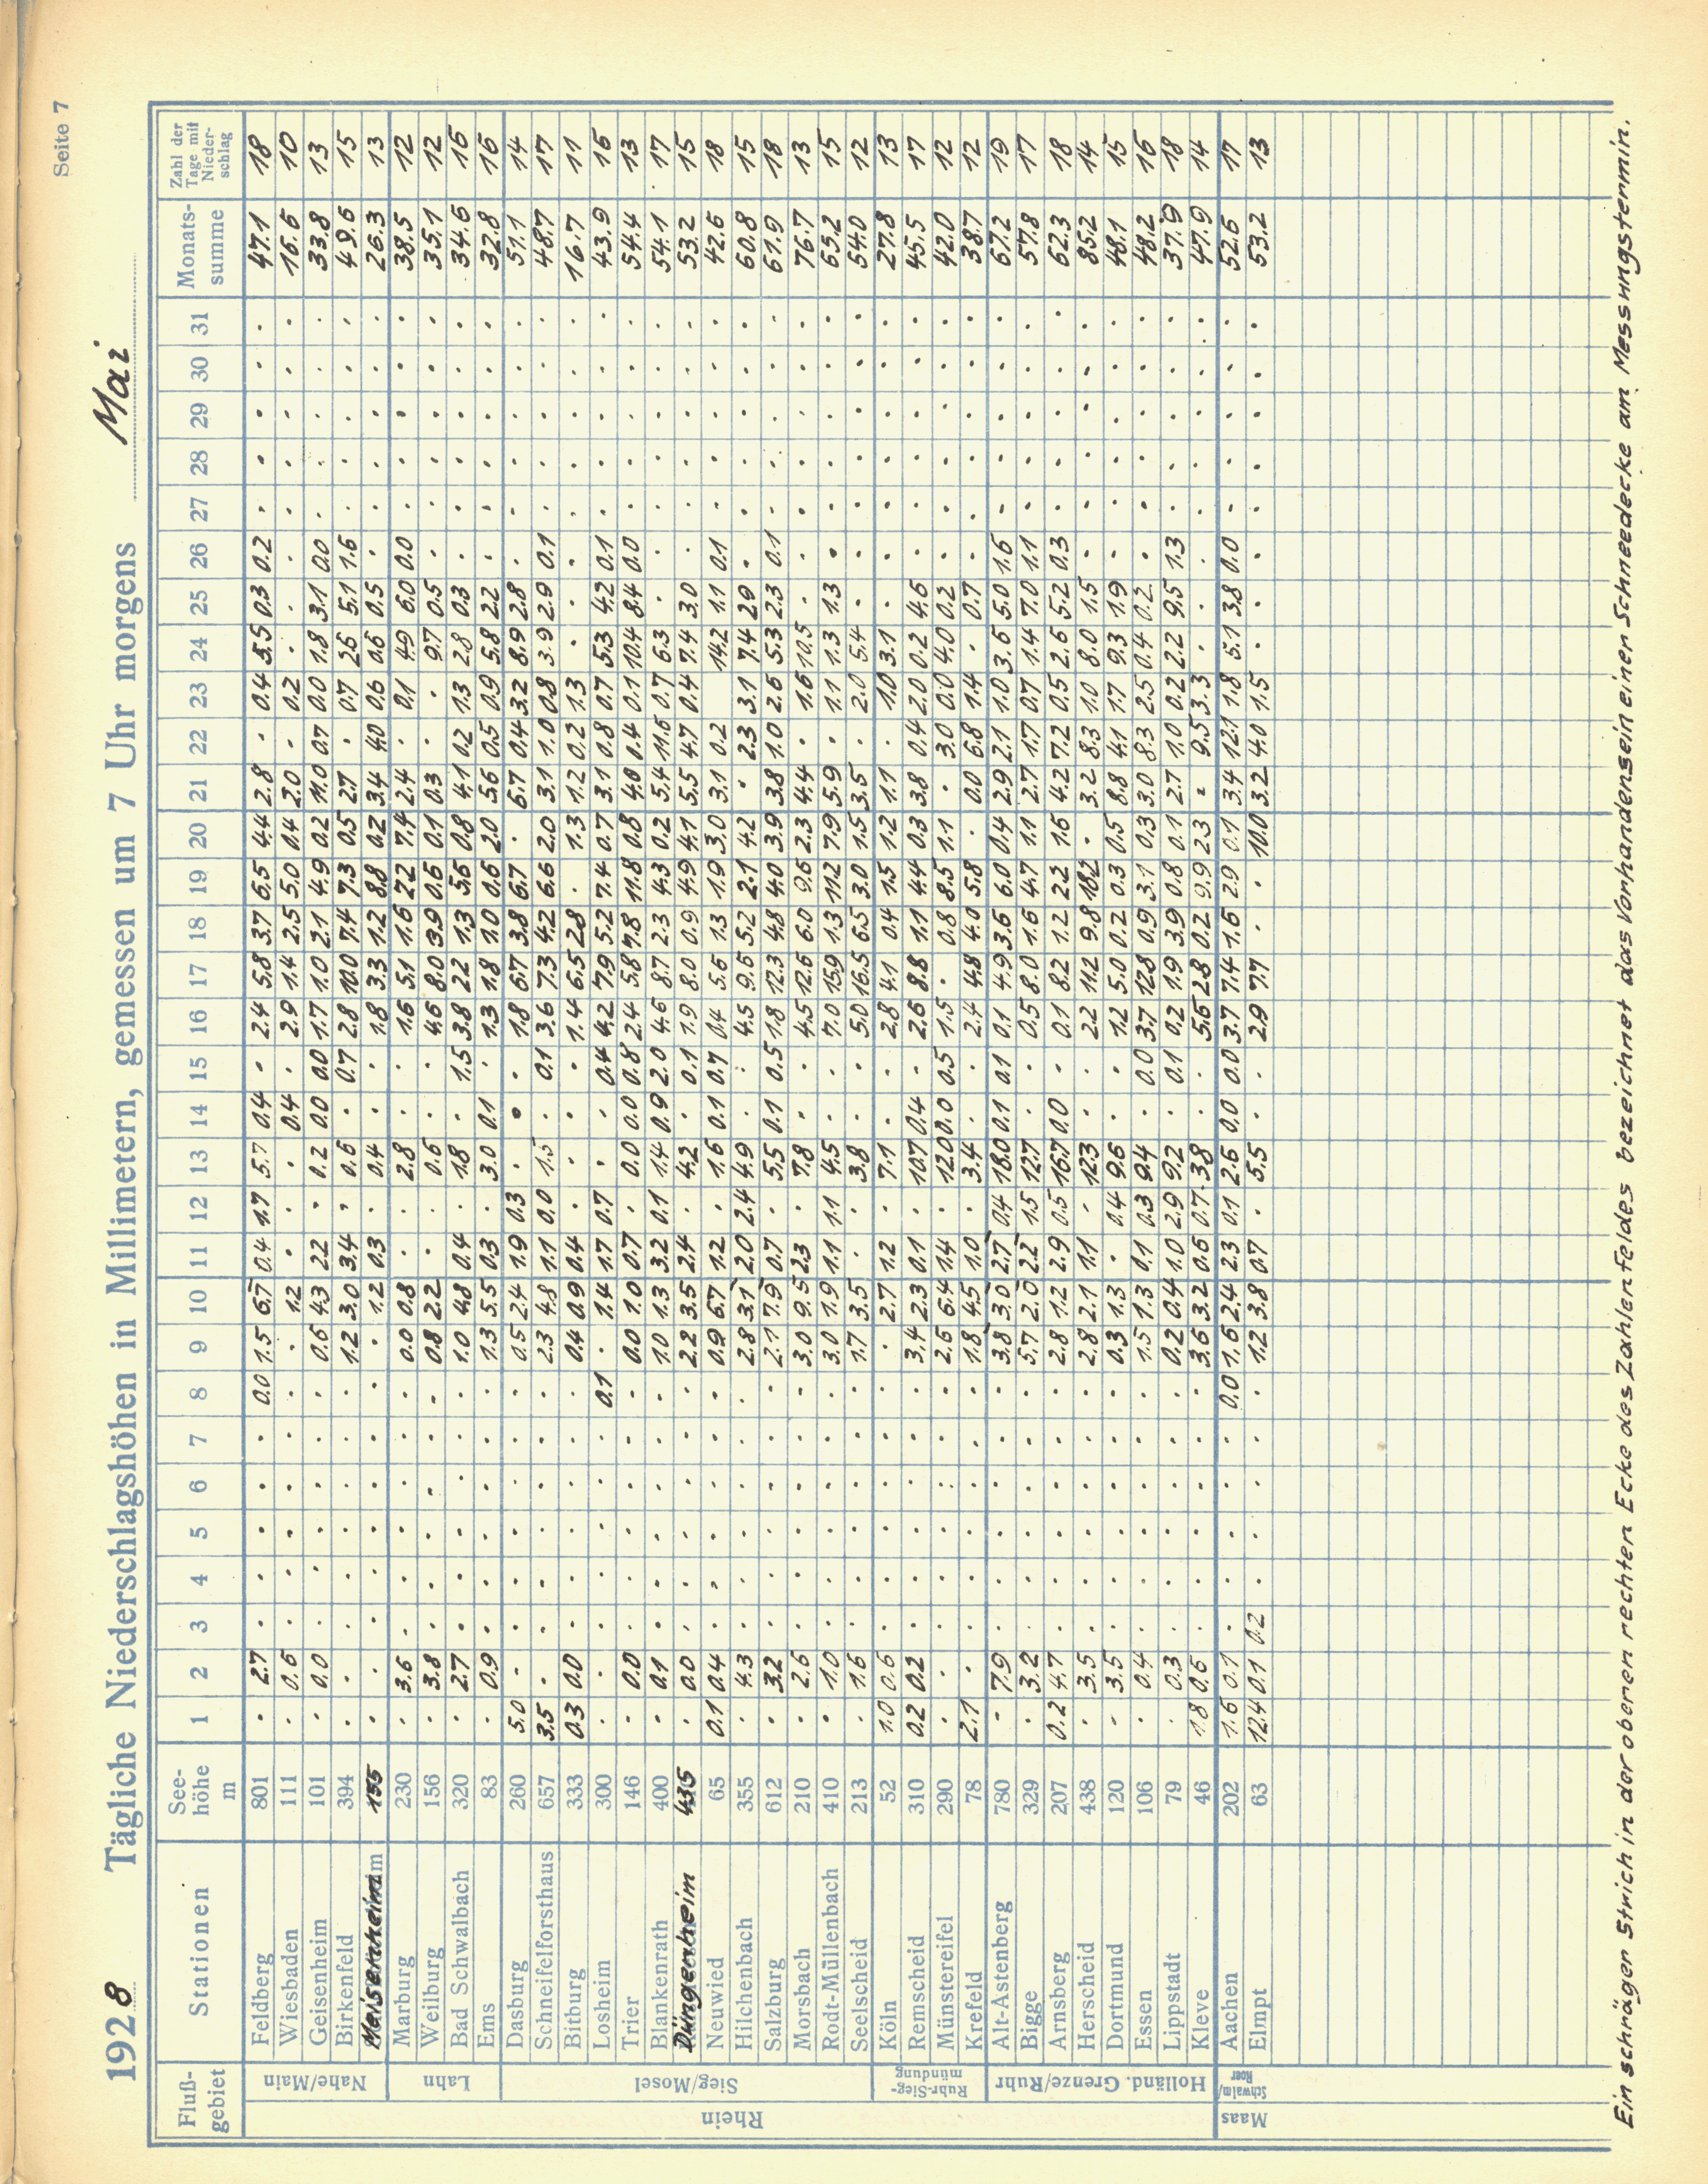 Seite 7
1928 Tägliche Niederschlagshöhen in Millimetern, gemessen um 7 Uhr morgens Mai
Fluß-gebiet Stationen See-höhe m 1 2 3 4 5 6 7 8 9 10 11 12 13 14 15 16 17 18 19 20 21 22 23 24 25 26 27 28 29 30 31 Monats-summe Zahl der Tage mit Nieder-schlag
Rhein
Nahe/Main
Feldberg 801 . 2.7 . . . . . 0.0 1.5 6.7 0.4 1.7 5.7 0.4 . 2.4 5.8 3.7 6.5 4.4 2.8 . 0.4 5.5 0.3 0.2 . . . . . 47.1 18
Wiesbaden 111 . 0.6 . . . . . . . 1.2 . . . 0.4 . 2.9 1.4 2.5 5.0 0.4 2.0 . 0.2 . . . . . . . . 16.6 10
Geisenheim 101 . 0.0 . . . . . . 0.6 4.3 2.2 . 0.2 0.0 0.0 1.7 1.0 2.1 4.9 0.2 11.0 0.7 0.0 1.8 3.1 0.0 . . . . . 33.8 13
Birkenfeld 394 . . . . . . . . 1.2 3.0 3.4 . 0.6 . 0.7 2.8 10.0 7.4 7.3 0.5 2.7 . 0.7 2.6 5.1 1.6 . . . . . 49.6 15
Meisenheim 155 . . . . . . . . . 1.2 0.3 . 0.4 . . 1.8 3.3 1.2 8.8 0.2 3.4 4.0 0.6 0.6 0.5 . . . . . . 26.3 13
Lahn
Marburg 230 . 3.6 . . . . . . 0.0 0.8 . . 2.8 . . 1.6 5.1 1.6 2.2 7.4 2.4 . 0.1 4.9 6.0 0.0 . . . . . 38.5 12
Weilburg 156 . 3.8 . . . . . . 0.8 2.2 . . 0.6 . . 4.6 8.0 3.9 0.6 0.1 0.3 . . 9.7 0.5 . . . . . . 35.1 12
Bad Schwalbach 320 . 2.7 . . . . . . 1.0 4.8 0.4 . 1.8 . 1.5 3.8 2.2 1.3 5.6 0.8 4.1 0.2 1.3 2.8 0.3 . . . . . . 34.6 16
Ems 83 . 0.9 . . . . . . 1.3 5.5 0.3 . 3.0 0.1 . 1.3 1.8 1.0 0.6 2.0 5.6 0.5 0.9 5.8 2.2 . . . . . . 32.8 16
Sieg/Mosel
Dasburg 260 5.0 . . . . . . . 0.5 2.4 1.9 0.3 . . . 1.8 6.7 3.8 6.7 . 6.7 0.4 3.2 8.9 2.8 . . . . . . 51.1 14
Schneifelforsthaus 657 3.5 . . . . . . . 2.3 4.8 1.1 0.0 1.5 . 0.1 3.6 7.3 4.2 6.6 2.0 3.1 1.0 0.8 3.9 2.9 0.1 . . . . . 48.7 17
Bitburg 333 0.3 0.0 . . . . . . 0.4 0.9 0.4 . . . . 1.4 6.5 2.8 . 1.3 1.2 0.2 1.3 . . . . . . . . 16.7 11
Losheim 300 . . . . . . . 0.1 . 1.4 1.7 0.7 . . 0.4 4.2 7.9 5.2 7.4 0.7 3.1 0.8 0.7 5.3 4.2 0.1 . . . . . 43.9 16
Trier 146 . 0.0 . . . . . . 0.0 1.0 0.7 . 0.0 0.0 0.8 2.4 5.8 7.8 11.8 0.8 4.0 0.4 0.1 10.4 8.4 0.0 . . . . . 54.4 13
Blankenrath 400 . 0.1 . . . . . . 1.0 1.3 3.2 0.1 1.4 0.9 2.0 4.6 8.7 2.3 4.3 0.2 5.4 11.6 0.7 6.3 . . . . . . . 54.1 17
Düngenheim 435 . 0.0 . . . . . . 2.2 3.5 2.4 . 4.2 . 0.1 1.9 8.0 0.9 4.9 4.1 5.5 4.7 0.4 7.4 3.0 . . . . . . 53.2 15
Neuwied 65 0.1 0.4 . . . . . . 0.9 6.7 1.2 . 1.6 0.1 0.7 0.4 5.6 1.3 1.9 3.0 3.1 0.2 14.2 1.1 0.1 . . . . . 42.6 18
Hilchenbach 355 . 4.3 . . . . . . 2.8 3.1 2.0 2.4 4.9 . . 4.5 9.6 5.2 2.1 4.2 . 2.3 3.1 7.4 2.9 . . . . . . 60.8 15
Salzburg 612 . 3.2 . . . . . . 2.1 7.9 0.7 . 5.5 0.1 0.5 1.8 12.3 4.8 4.0 3.9 3.8 1.0 2.6 5.3 2.3 0.1 . . . . . 61.9 18
Morsbach 210 . 2.6 . . . . . . 3.0 9.5 2.3 . 7.8 . . 4.5 12.6 6.0 9.6 2.3 4.4 . 1.6 10.5 . . . . . . . 76.7 13
Rodt-Müllenbach 410 . 1.0 . . . . . . 3.0 1.9 1.1 1.1 4.5 . . 7.0 15.9 1.3 11.2 7.9 5.9 . 1.1 1.3 1.3 . . . . . . 65.2 15
Seelscheid 213 . 1.6 . . . . . . 1.7 3.5 . . 3.8 . . 5.0 16.5 6.5 3.0 1.5 3.5 . 2.0 5.4 . . . . . . . 54.0 12
Ruhr-Sieg-mündung
Köln 52 1.0 0.6 . . . . . . . 2.7 1.2 . 7.1 . . 2.8 4.1 0.4 1.5 1.2 1.1 . 1.0 3.1 . . . . . . . 27.8 13
Remscheid 310 0.2 0.2 . . . . . . 3.4 2.3 0.1 . 10.7 0.4 . 2.6 8.8 1.1 4.4 0.3 3.8 0.4 2.0 0.2 4.6 . . . . . . 45.5 17
Münstereifel 290 . . . . . . . . 2.6 6.4 1.4 . 12.0 0.0 0.5 1.5 . 0.8 8.5 1.1 . 3.0 0.0 4.0 0.2 . . . . . . 42.0 12
Krefeld 78 2.1 . . . . . . . 1.8 4.5 1.0 . 3.4 . . 2.4 4.8 4.0 5.8 . 0.0 6.8 1.4 . 0.7 . . . . . . 38.7 12
Holländ. Grenze/Ruhr
Alt-Astenberg 780 . 7.9 . . . . . . 3.8 3.0 2.7 0.4 18.0 0.1 0.1 0.1 4.9 3.6 6.0 0.4 2.9 2.1 1.0 3.6 5.0 1.6 . . . . . 67.2 19
Bigge 329 . 3.2 . . . . . . 5.7 2.0 2.2 1.5 12.7 . . 0.5 8.0 1.6 4.7 1.1 2.7 1.7 0.7 1.4 7.0 1.1 . . . . . 57.8 17
Arnsberg 207 0.2 4.7 . . . . . . 2.8 1.2 2.9 0.5 16.7 0.0 . 0.1 8.2 1.2 2.2 1.6 4.2 7.2 0.5 2.6 5.2 0.3 . . . . . 62.3 18
Herscheid 438 . 3.5 . . . . . . 2.8 2.1 1.1 . 12.3 . . 2.2 11.2 9.8 18.2 . 3.2 8.3 1.0 8.0 1.5 . . . . . . 85.2 14
Dortmund 120 . 3.5 . . . . . . 0.3 1.3 . 0.4 9.6 . . 1.2 5.0 0.2 0.3 0.5 8.8 4.1 1.7 9.3 1.9 . . . . . . 48.1 15
Essen 106 . 0.4 . . . . . . 1.5 1.3 0.1 0.3 9.4 . 0.0 3.7 12.8 0.9 3.1 0.3 3.0 8.3 2.5 0.4 0.2 . . . . . . 48.2 16
Lippstadt 79 . 0.3 . . . . . . 0.2 0.4 1.0 2.9 9.2 . 0.1 0.2 1.9 3.9 0.8 0.1 2.7 1.0 0.2 2.2 9.5 1.3 . . . . . 37.9 18
Kleve 46 1.8 0.6 . . . . . . 3.6 3.2 0.6 0.7 3.8 . . 5.6 2.8 0.2 9.9 2.3 . 9.5 3.3 . . . . . . . . 47.9 14
Maas
Schwalm/Roer
Aachen 202 1.6 0.1 . . . . . 0.0 1.6 2.4 2.3 0.1 2.6 0.0 0.0 3.7 7.4 1.6 2.9 0.1 3.4 12.1 1.8 5.1 3.8 0.0 . . . . . 52.6 17
Elmpt 63 12.4 0.1 0.2 . . . . . 1.2 3.8 0.7 . 5.5 . . 2.9 7.7 . . 10.0 3.2 4.0 1.5 . . . . . . . . 53.2 13
Ein schräger Strich in der oberen rechten Ecke des Zahlenfeldes bezeichnet das Vorhandensein einer Schneedecke am Messungstermin.